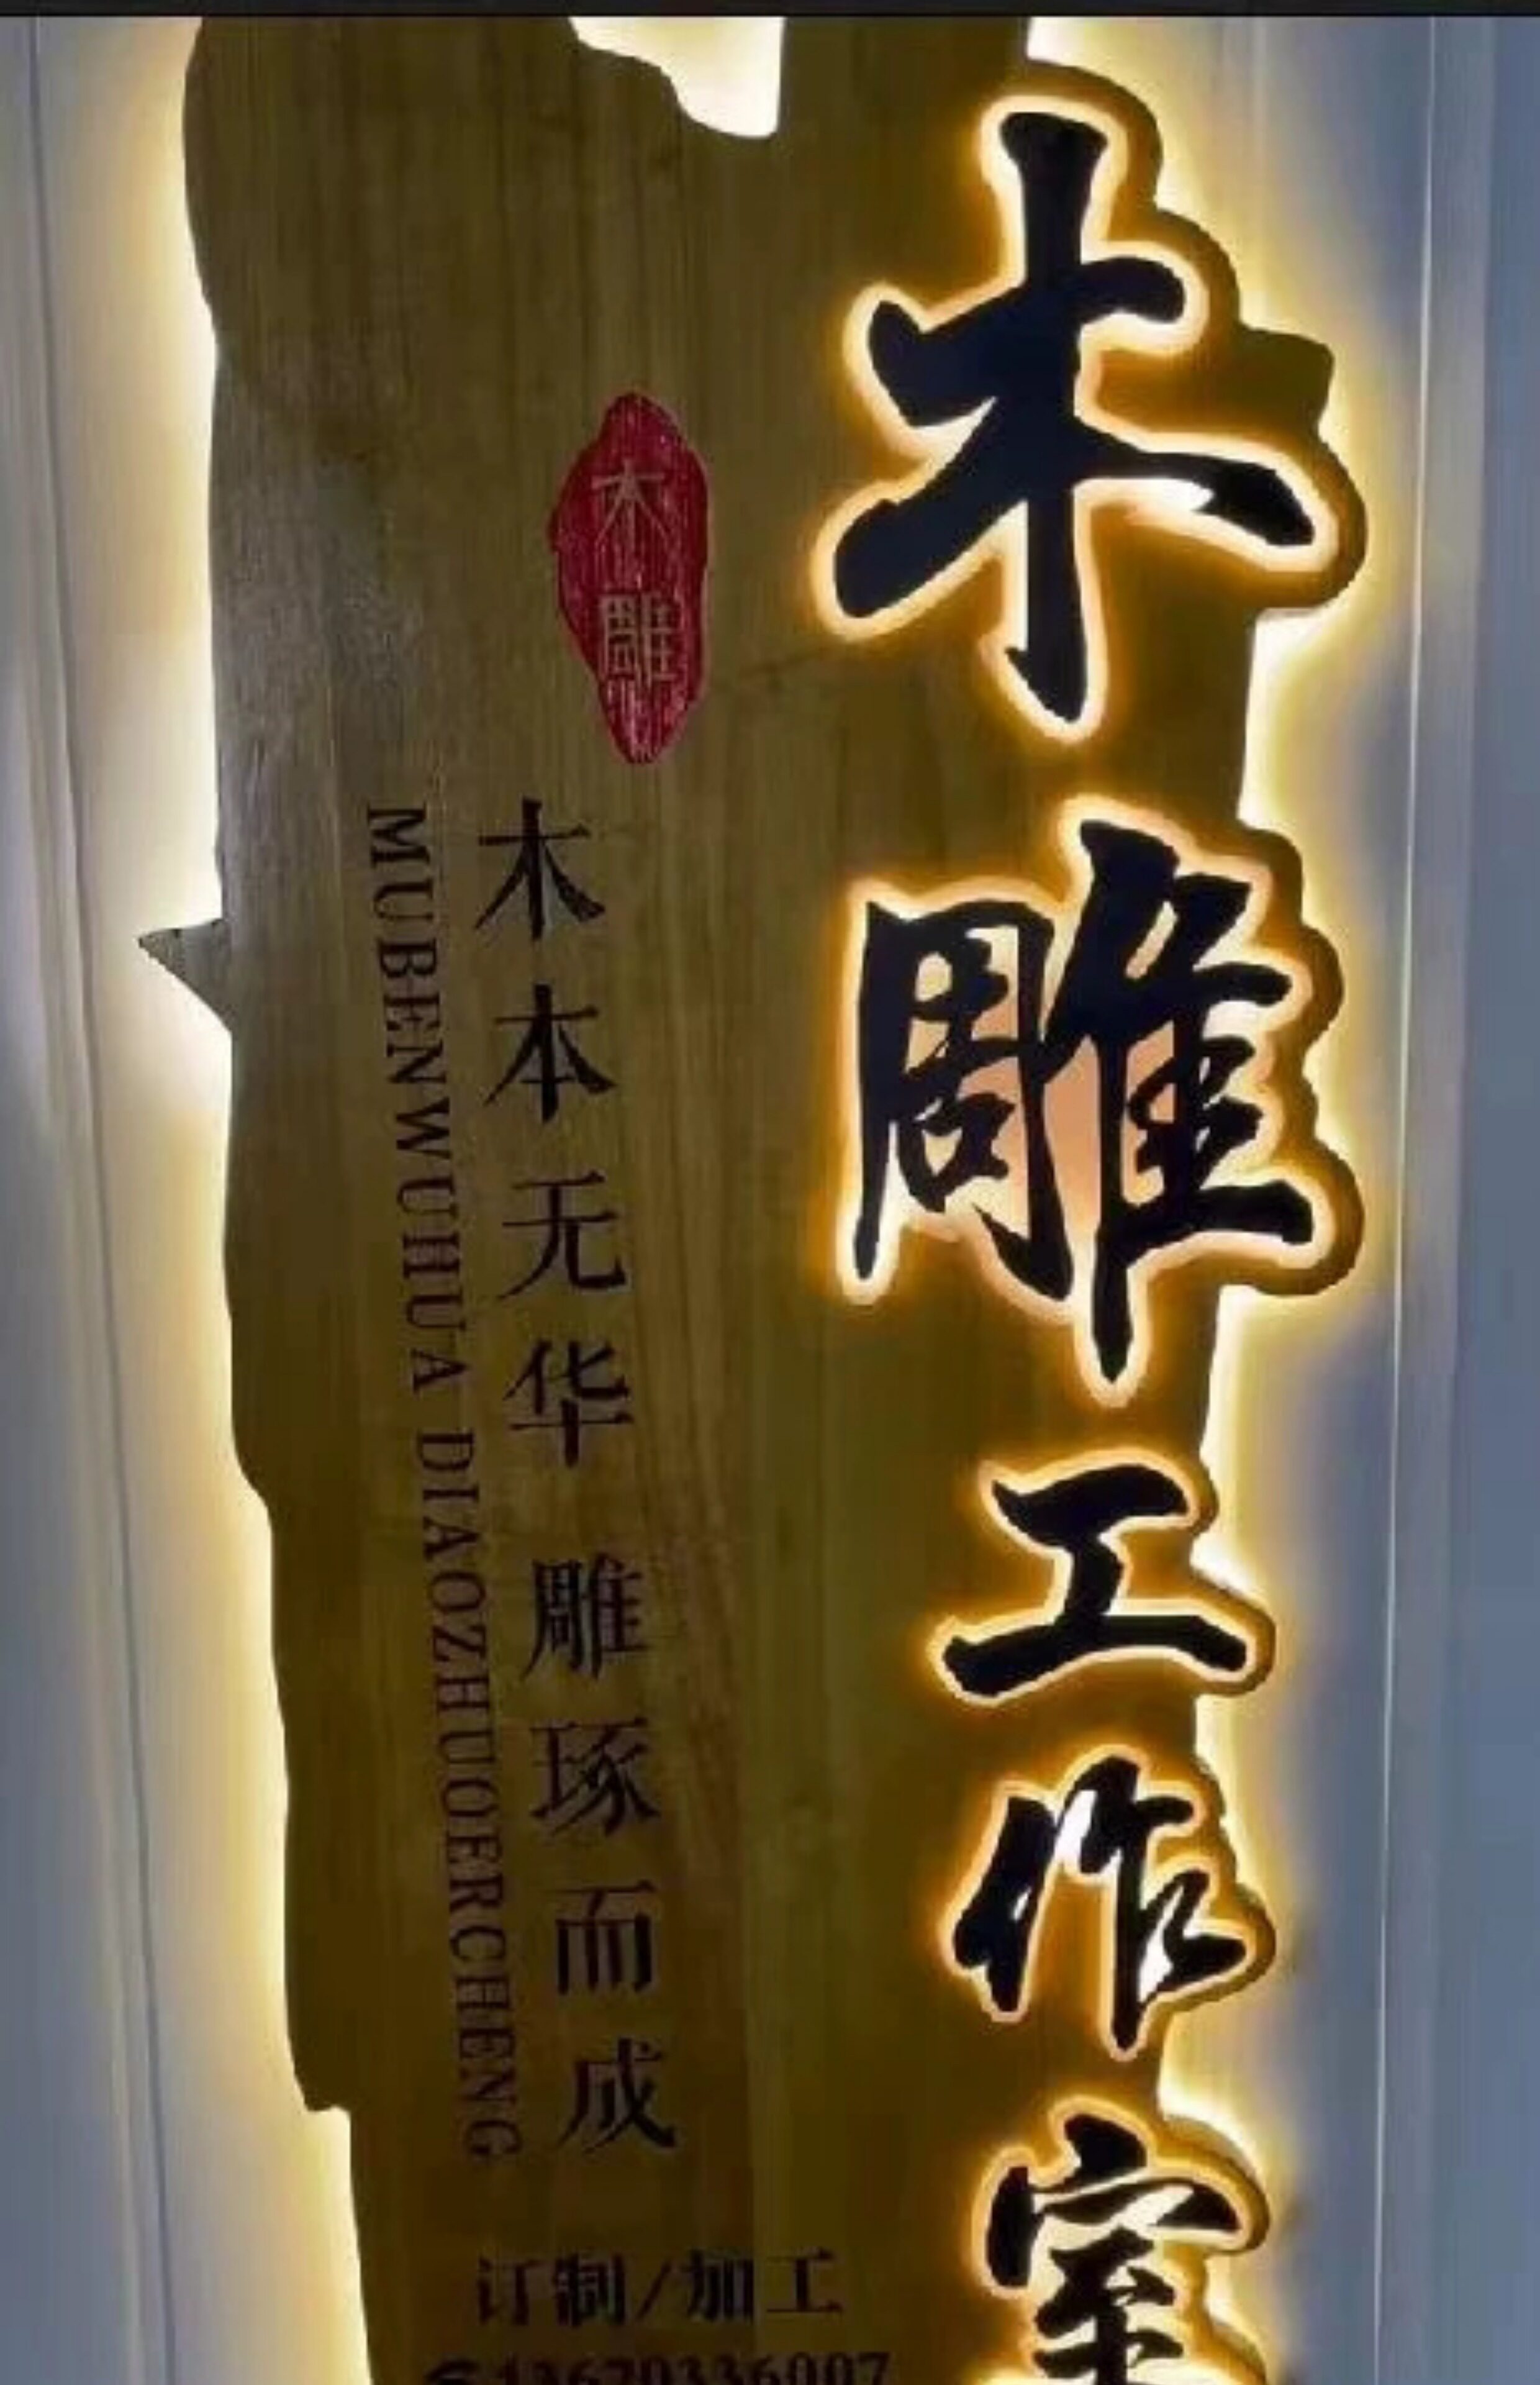 木雕工作室
木雕
木本无华 雕琢而成
MUBENWUHUA DIAOZHUOERCHENG
订制/加工